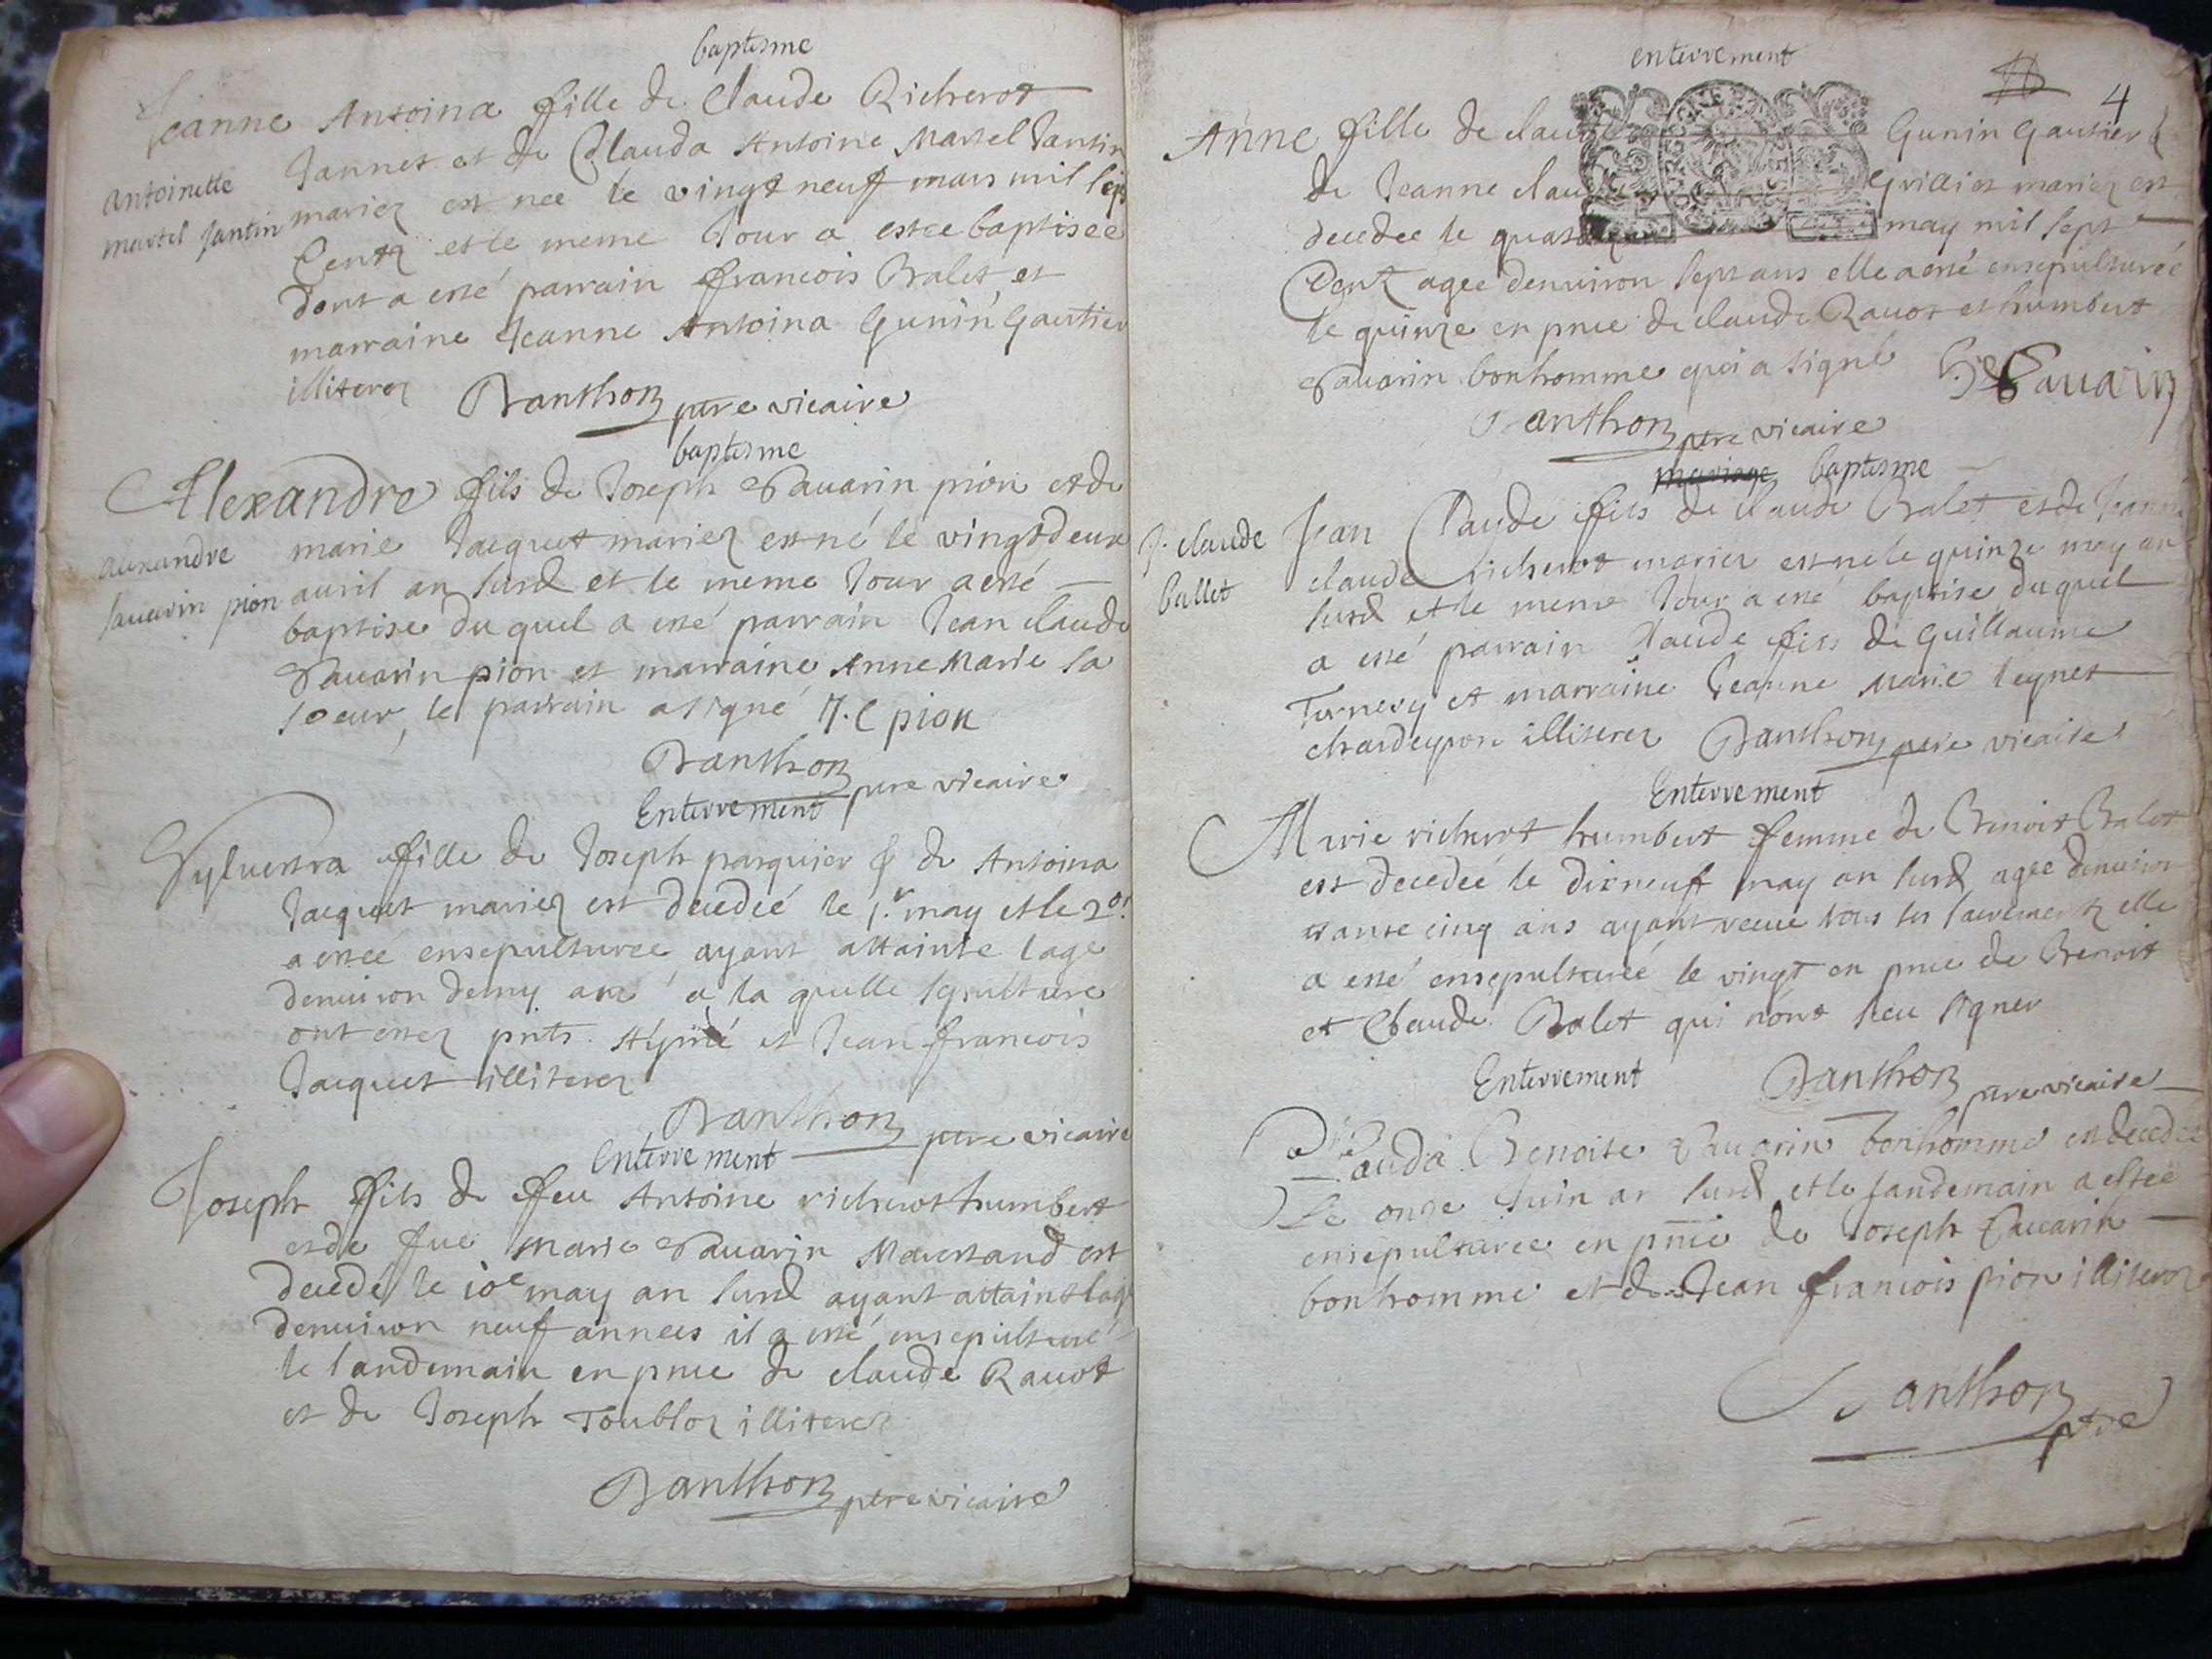 baptisme
Jeanne Antoina fille de Claude Richerot
Jannet et de Clauda Antoine Martel Jantin
antoinette
martel jantin
mariez est nee le vingt neuf mars mil sept
Centz et le meme Jour a estee baptisee
dont a esté parrain francois Balet et
marraine Jeanne Antoina Gunin Gautier
illiterez Danthon ptre vicaire
baptisme
Alexandre fils de Joseph Pauarin pion et de
alixandre
sauarin pion
marie Jacquet mariez est né le vingt deux
auril an susd et le meme Jour a esté
baptise du quel a esté parrain Jean claude
Sauarin pion et marraine Anne Marie sa
soeur, le parrain a signé J. C pion
Danthon ptre vicaire
Enterrement
Syluestra fille de Joseph pasquier & de Antoina
Jacquet mariez est decedeé le 1.r may et le 2.d
a estee ensepulturee ayant attainte lage
denuiron demy an a la quelle sepulture
ont estez pnts. et Jean francois
Jacquet illiterez
Danthon ptre vicaire
Enterrement
Joseph fils de feu Antoine richerot humbert
et de fue Marie Sauarin Marchand est
decedé le 10e may an susd ayant attaint lage
denuiron neuf annees il a esté ensepulturé
le landemain en pnce de claude Rauot
et de Joseph Toubloz illiterez
Danthon ptre vicaire
enterrement
4
Anne fille de clau Gunin Gautier &
de Jeanne clau Grilliet mariez est
decedee le quat may mil sept
Centz agee denuiron sept ans elle a esté ensepulturée
le quinze en pnce de claude Rauot et humbert
Sauarin bonhomme qui a signé Sauarin
Danthon ptre vicaire
mariage baptisme
J. claude
ballet
Jean Claude fils de claude Balet et de Jeanne
claude richerot mariez est ne le quinze may an
susd et le meme Jour a esté baptise duquel
a esté parrain claude fils de Guillaume
Ternery et marraine Jeanne Marie
chardeyron illiterez Danthon ptre vicaire
Enterrement
Marie richerot humbert femme de Benoit Balet
est decedeé le dixneuf may an susd agee denuiron
trante cinq ans ayant receu tous les sacrements elle
a esté ensepulturée le vingt en pnce de Benoit
et Claude Balet qui nont sceu signer
Enterrement Danthon ptre vicaire
Clauda Benoite Sauarin bonhomme est decedée
le onze Juin an susd et le landemain a estee
ensepulturee en pnce de Joseph Sauarin
bonhomme et de Jean francois pion illiterez
Danthon
ptre